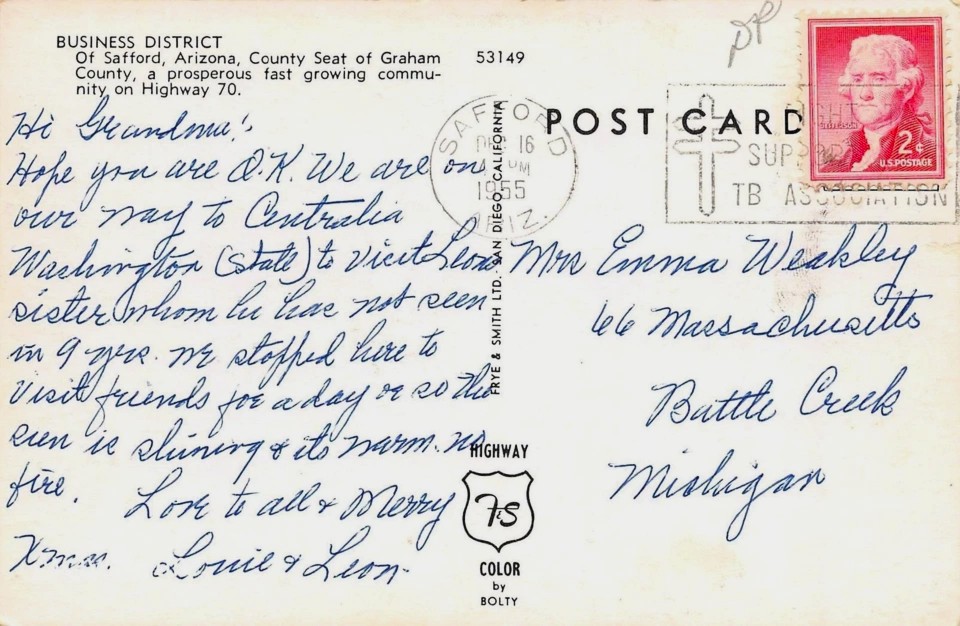 BUSINESS DISTRICT
Of Safford, Arizona, County Seat of Graham
County, a prosperous fast growing commu-
nity on Highway 70.
53149
Hi Grandma!
Hope you are O.K. We are on
our way to Centralia
Washington (state) to visit Leons
sister whom he has not seen
in 9 yrs. we stopped here to
visit friends for a day or so the
sun is shining & its warm. no
fire.
Love to all & Merry
Xmas.
Louie & Leon
SAFFORD
DEC 16
PM
1955
ARIZ.
FRYE & SMITH LTD. SAN DIEGO, CALIFORNIA
HIGHWAY
F&S
COLOR
by
BOLTY
POST CARD
FIGHT
SUPPORT
TB ASSOCIATION
2¢
U.S. POSTAGE
Mrs Emma Weakley
66 Massachusetts
Battle Creek
Michigan